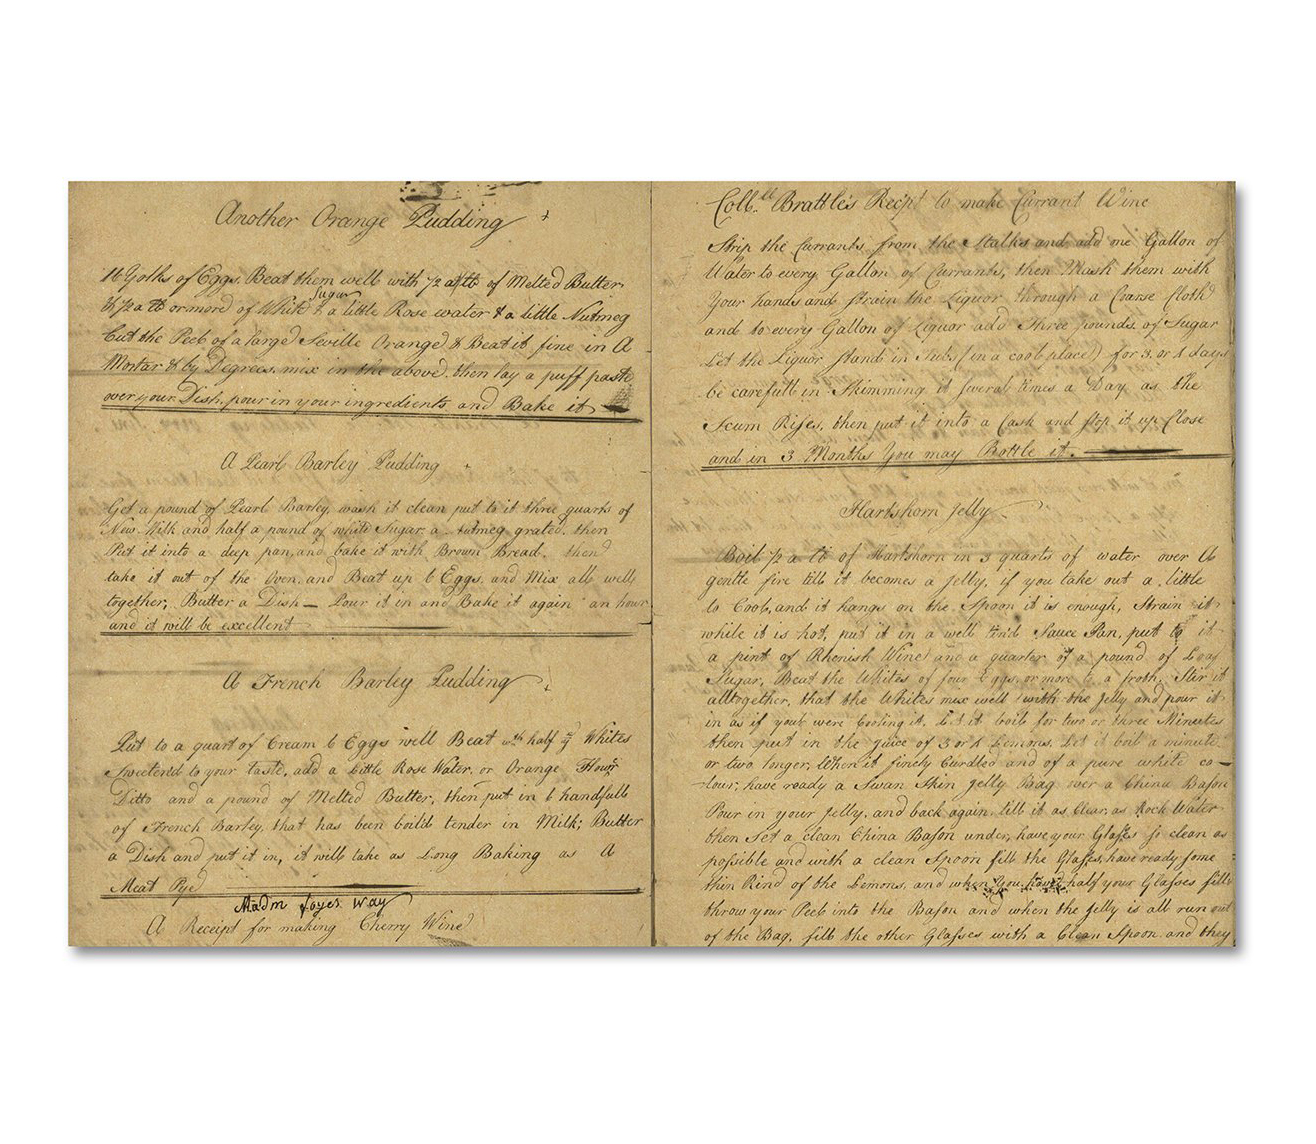 Another Orange Pudding
16 Yolks of Eggs. Beat them well with 1/2 a lb of Melted Butter
& 1/2 a lb or more of White Sugar & a little Rose water & a little Nutmeg
Cut the Peel of a large Seville Orange & Beat it fine in A
Mortar & by Degrees mix in the above. then lay a puff paste
over your Dish, pour in your ingredients and Bake it
A Pearl Barley Pudding
Get a pound of Pearl Barley, wash it clean put to it three quarts of
New Milk and half a pound of white Sugar. a nutmeg grated. then
Put it into a deep pan, and bake it with Brown Bread. then
take it out of the Oven. and Beat up 6 Eggs. and Mix all well
together; Butter a Dish — Pour it in and Bake it again an hour
and it will be excellent
A French Barley Pudding
Put to a quart of Cream 6 Eggs well Beat wth half ye Whites
Sweeten'd to your taste. add a Little Rose Water. or Orange Flour
Ditto and a pound of Melted Butter. then put in 6 handfulls
of French Barley, that has been boil'd tender in Milk; Butter
a Dish and put it in, it will take as Long Baking as A
Meat Pye
Madm Joyes Way
A Receipt for making Cherry Wine
Coll. Brattle's Recipt to make Currant Wine
Strip the Currants from the Stalks and add one Gallon of
Water to every Gallon of Currants, then Mash them with
Your hands and strain the Liquor through a Coarse Cloth
and to every Gallon of Liquor add Three pounds of Sugar
Let the Liquor stand in Tubs (in a cool place) for 3 or 4 days
be carefull in Skimming it several times a Day, as the
Scum Rises, then put it into a Cask and stop it up Close
and in 3 Months You may Bottle it.
Hartshorn Jelly
Boil 1/2 a lb of Hartshorn in 3 quarts of water over A
gentle fire till it becomes a Jelly, if you take out a little
to Cool, and it hangs on the Spoon it is enough, Strain it
while it is hot, put it in a well tin'd Sauce Pan, put to it
a pint of Rhenish Wine and a quarter of a pound of Loaf
Sugar, Beat the Whites of four Eggs or more to a froth. Stir it
alltogether, that the Whites mix well with the Jelly and pour it
in as if you were Cooling it. Let it boil for two or three Minutes
then put in the juice of 3 or 4 Lemons. Let it boil a minute
or two longer, When it finely Curdled and of a pure white co-
-lour; have ready a Swan Skin jelly Bag over a China Bason
Pour in your Jelly, and back again, till it as Clear as Rock Water
then Set a clean China Bason under, have your Glasses as clean as
possible and with a clean Spoon fill the Glasses, have ready some
thin Rind of the Lemons, and when You have half your Glasses fill'd
throw your Peel into the Bason and when the jelly is all run out
of the Bag, fill the other Glasses with a Clean Spoon. and they